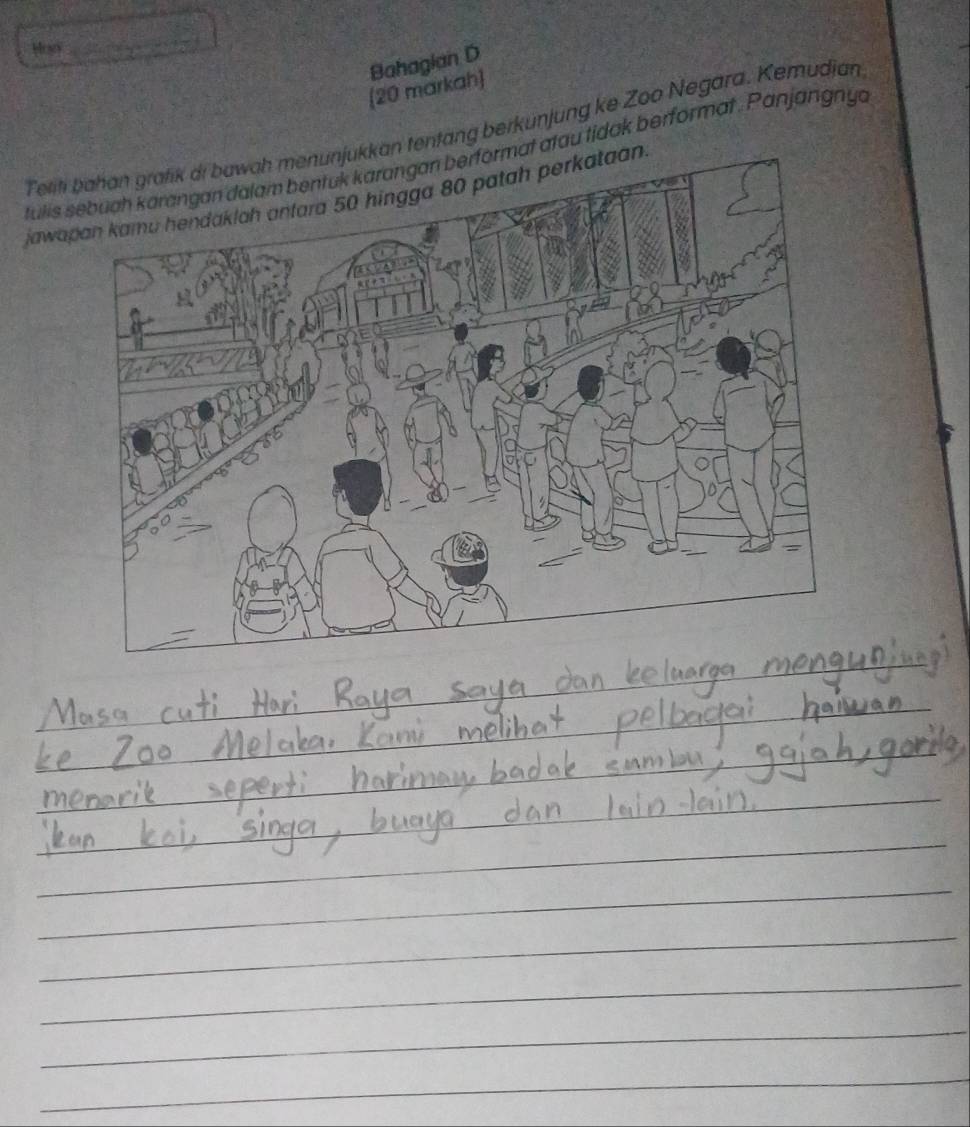 Bahagian D
[20 markah]
Teliti bahan grafik di bawah menunjukkan tentang berkunjung ke Zoo Negara. Kemudian,
tulis sebuah karangan dalam bentuk karangan berformat atau tidak berformat. Panjangnya
jawapan kamu hendaklah antara 50 hingga 80 patah perkataan.
Masa cuti Hari Raya saya dan keluarga mengunjungi
ke Zoo Melaka. Kami melihat pelbagai haiwan
menarik seperti harimau, badak sumbu, gajah, gorila,
ikan koi, singa, buaya dan lain-lain.